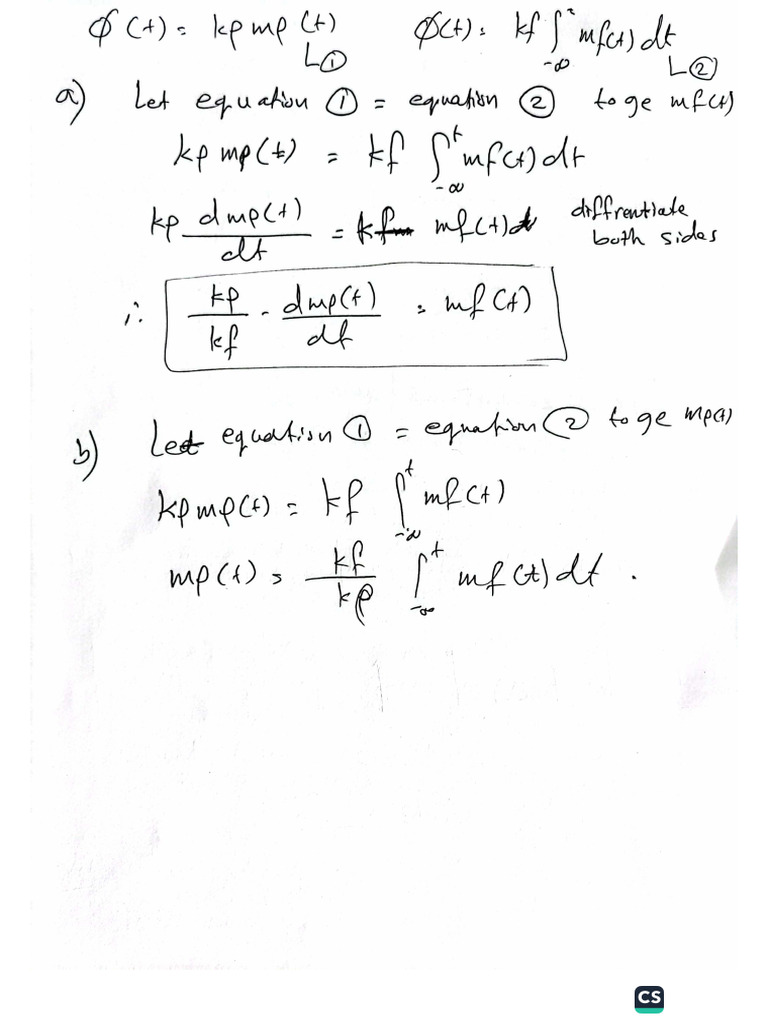 ϕ(t) = kp mp(t) ϕ(t) = kf ∫_{-∞}^{t} mf(t) dt
① ②
a) Let equation ① = equation ② to ge mf(t)
kp mp(t) = kf ∫_{-∞}^{t} mf(t) dt
kp dmp(t)/dt = kf mf(t) diffrentiate both sides
∴ kp/kf · dmp(t)/dt = mf(t)
b) Let equation ① = equation ② to ge mp(t)
kp mp(t) = kf ∫_{-∞}^{t} mf(t)
mp(t) = kf/kp ∫_{-∞}^{t} mf(t) dt .
CS